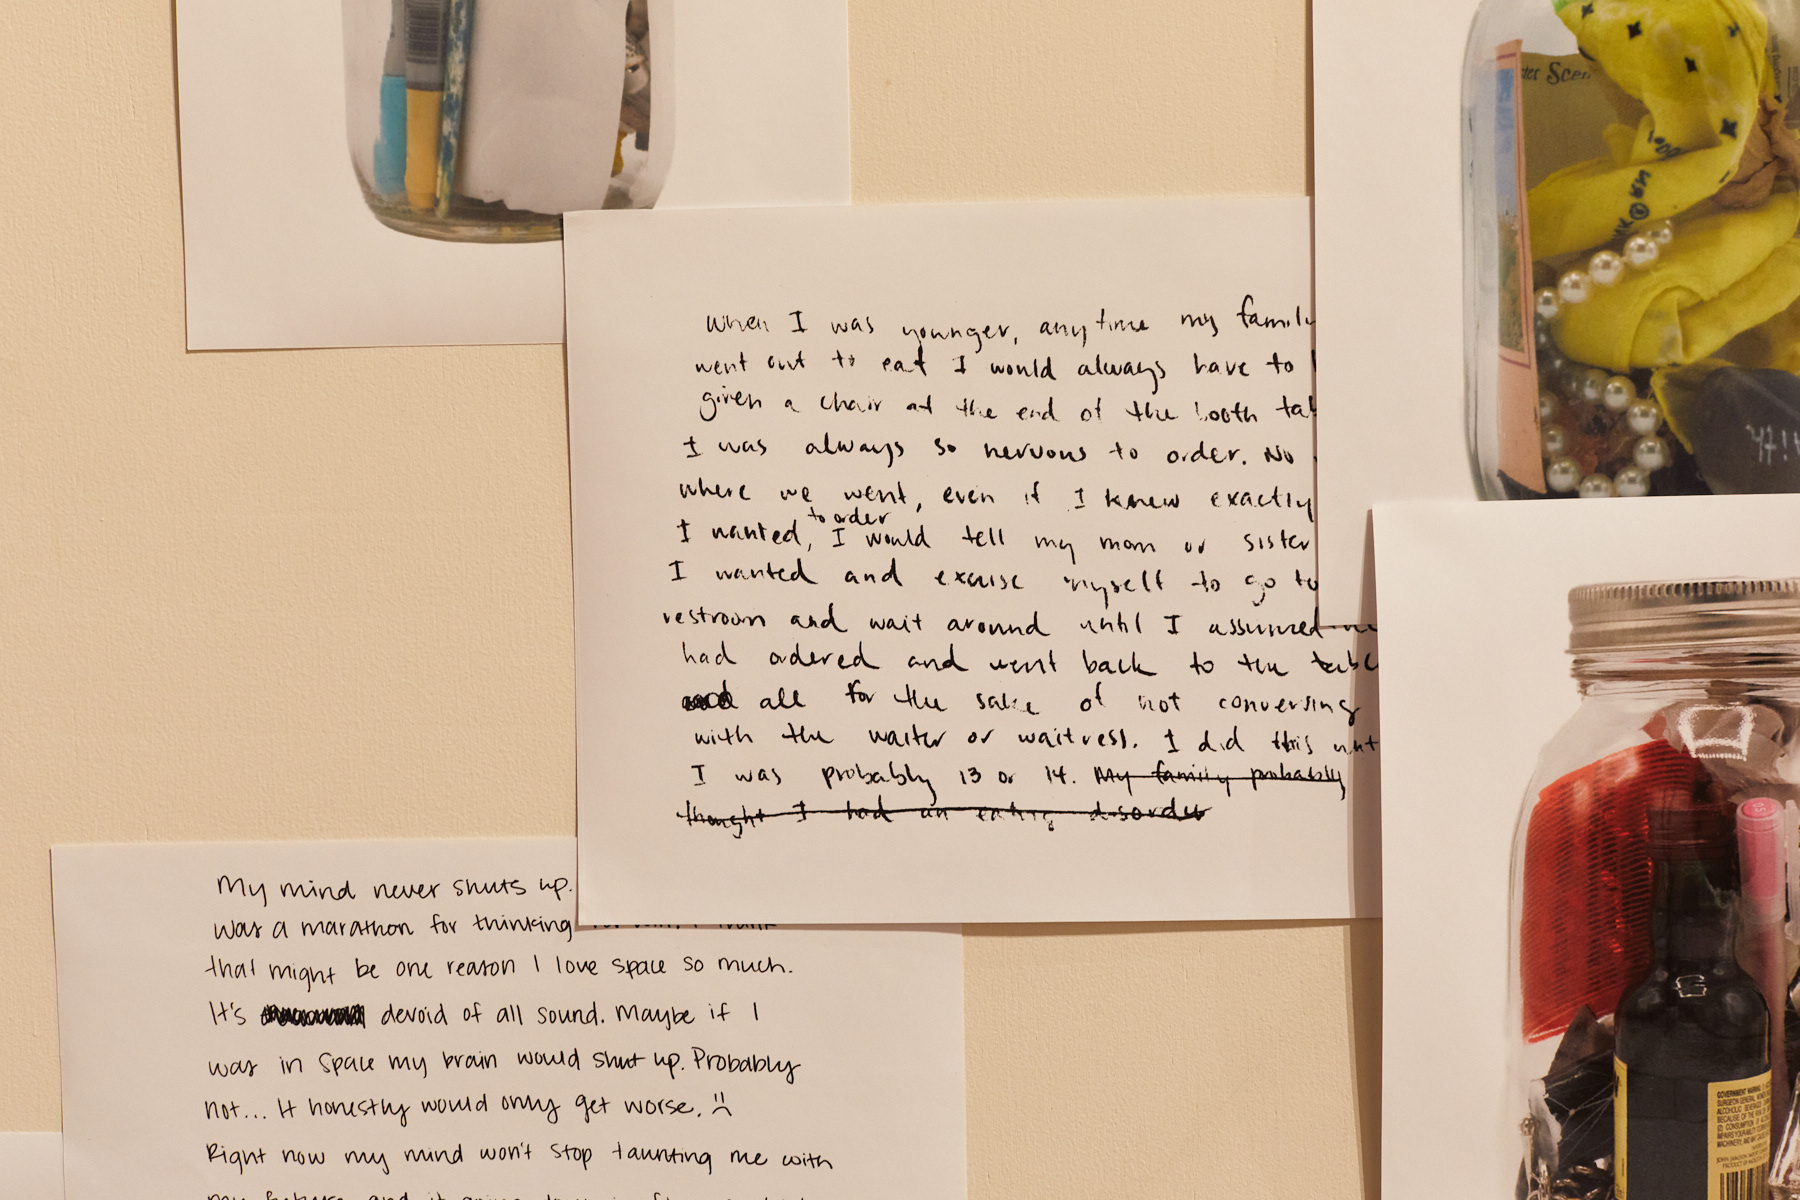 when I was younger, anytime my family
went out to eat I would always have to
given a chair at the end of the booth
I was always so nervous to order. No
where we went, even if I knew exactly
to order
I wanted, I would tell my mom or sister
I wanted and excuse myself to go to
restroom and wait around until I assumed
had ordered and went back to the table
all for the sake of not conversing
with the waiter or waitress. I did this
I was probably 13 or 14. My family probably
thought I had an eating disorder
My mind never shuts up.
was a marathon for thinking
that might be one reason I love space so much.
It's devoid of all sound. Maybe if I
was in space my brain would shut up. Probably
not... It honestly would only get worse. :(
Right now my mind won't stop taunting me with
GOVERNMENT WARNING